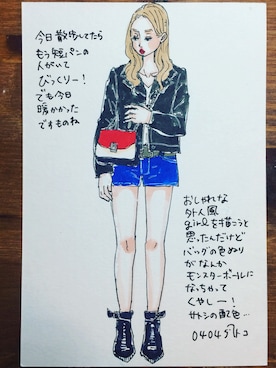 今日散歩してたら
もう短パンの
人がいて
びっくりー！
でも今日
暖かかった
ですものね
おしゃれな
外人風
girlを描こうと
思ったんだけど
バッグの色ぬり
がなんか
モンスターボールに
なっちゃって
くやしー！
サトシの配色…
0404